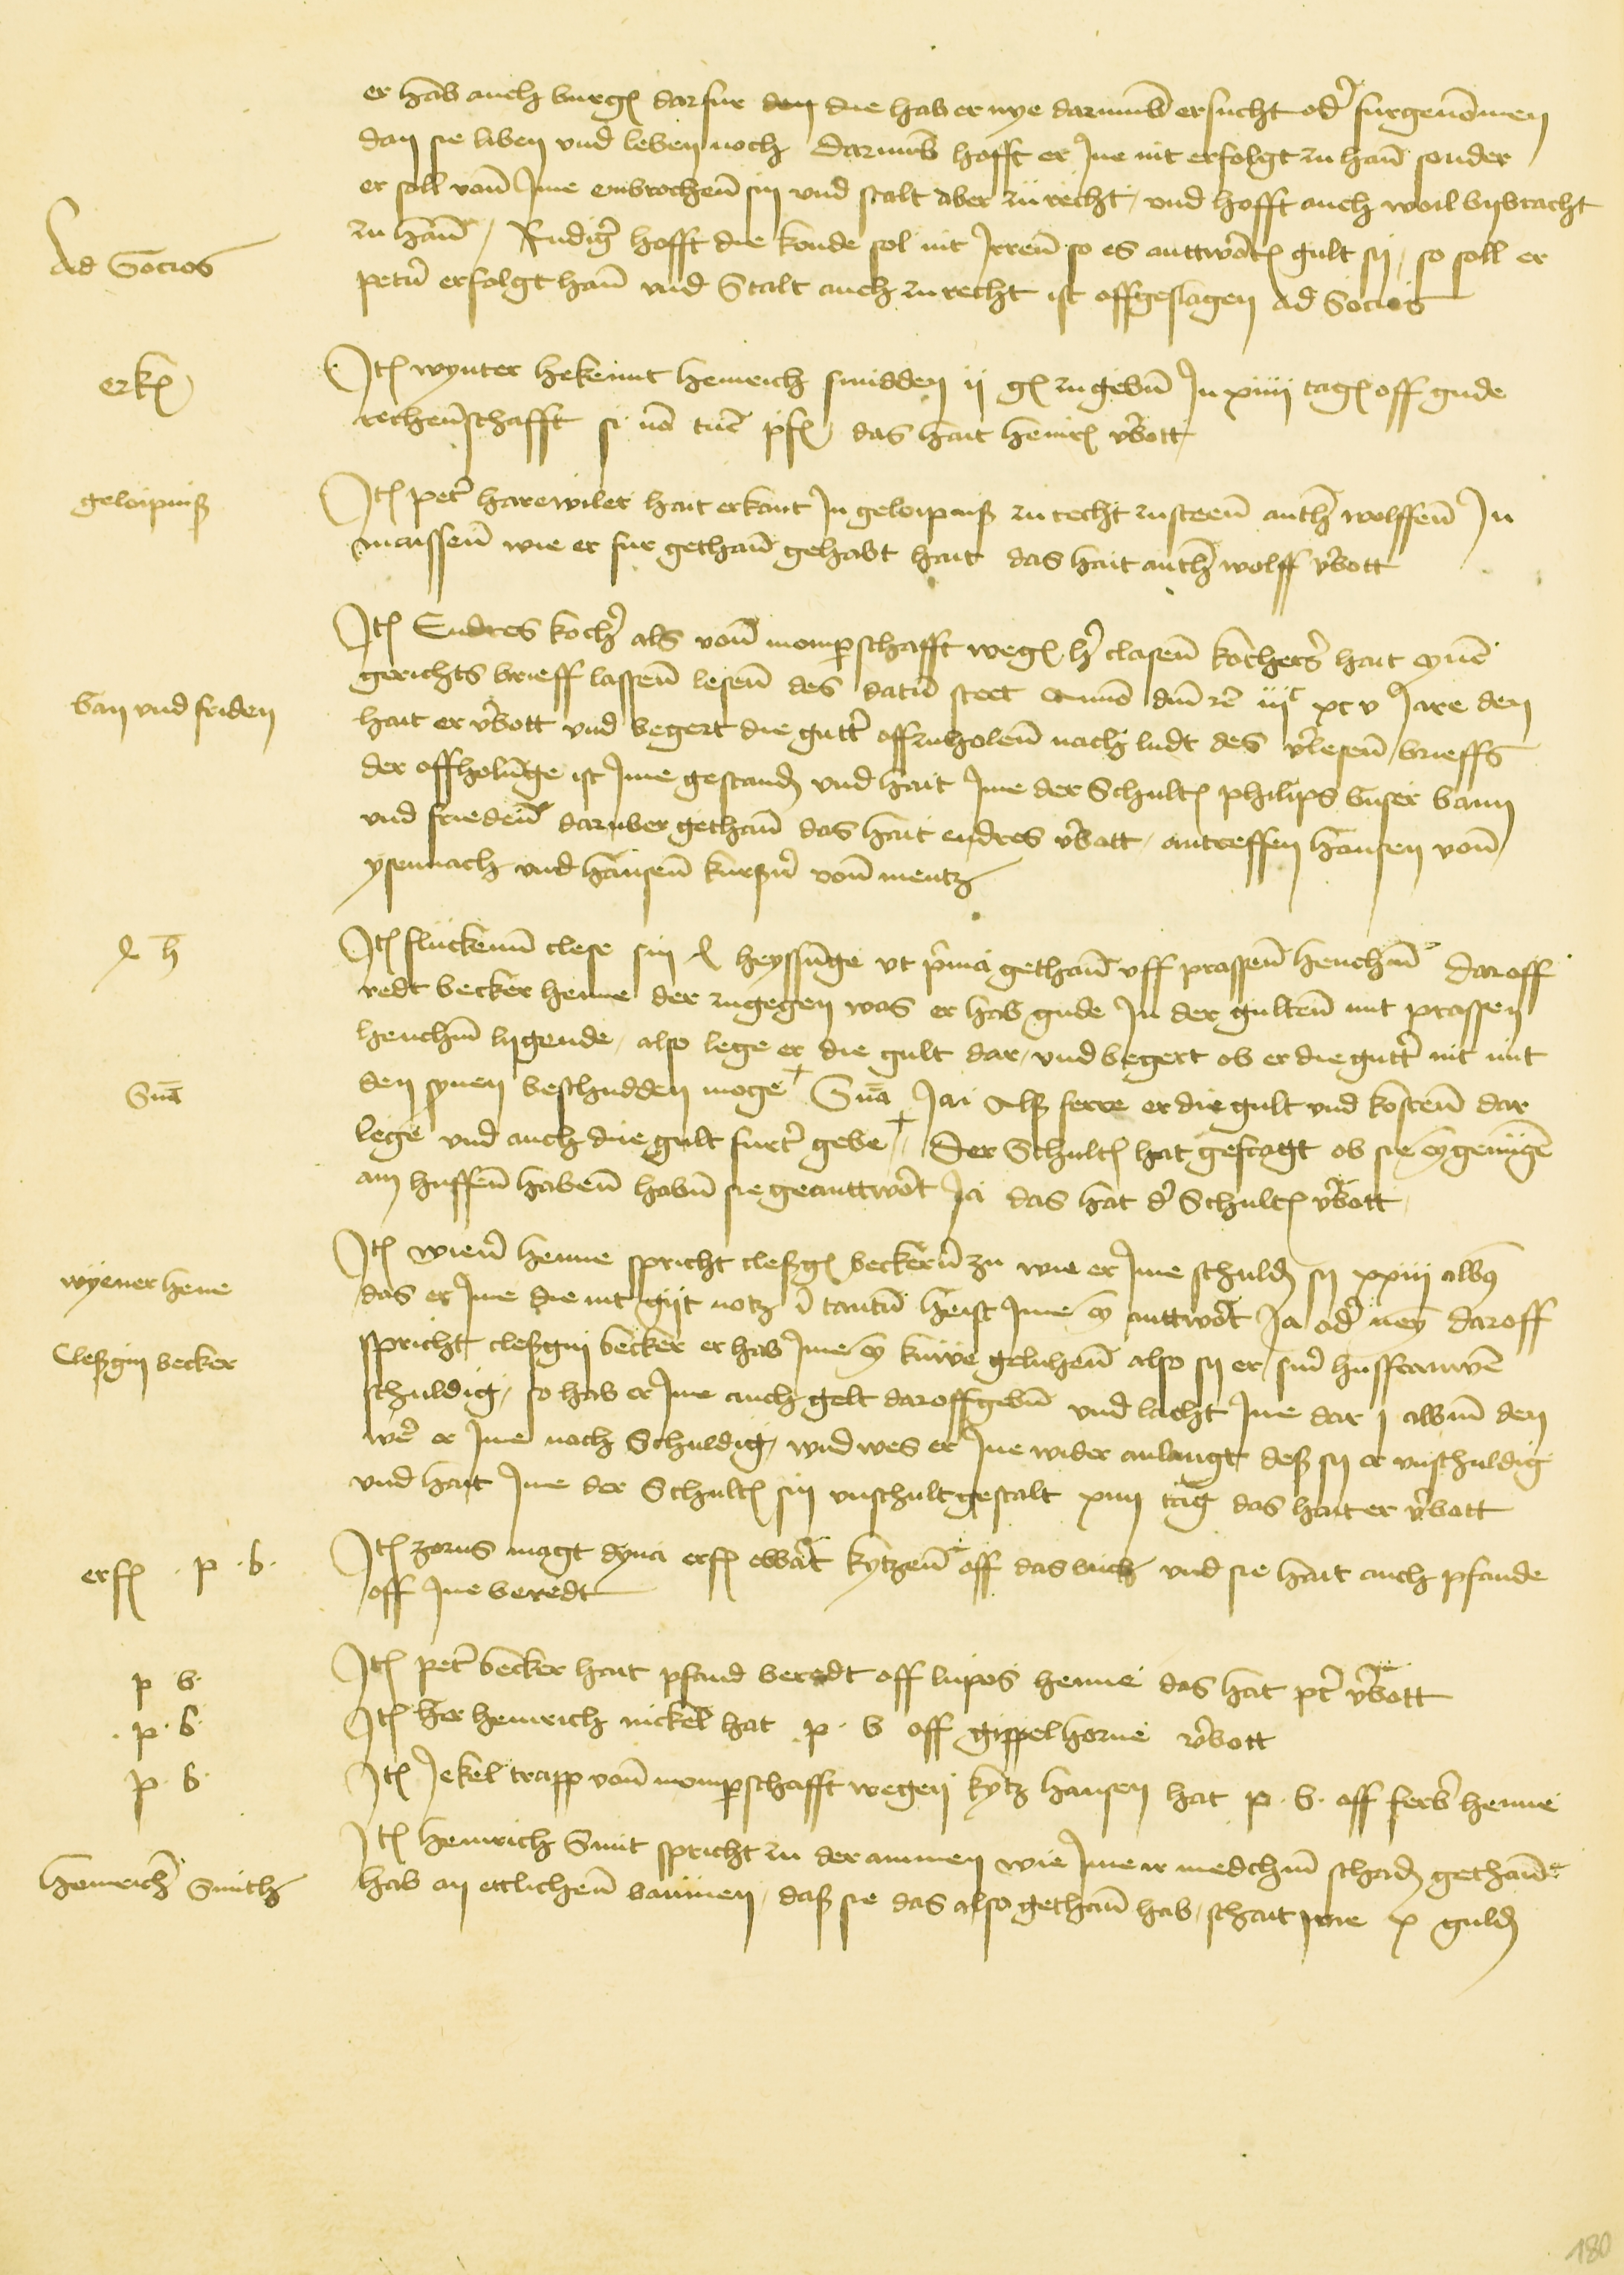 er hab auch burgen darfur den die hab er nye darumb ersucht oder furgenommen
dan sie liben und leben noch darumb hofft er Ine nit erfolgt zu han sonder
er soll von Ime embrochen sin und stalt aber zu recht / und hofft auch woil bijbracht
Ad Socios
zu han / Rudiger hofft die konde sol nit Irren so es anttworten gult sij / so soll er
petern erfolgt han und Stalt auch zu recht ist offgeslagen Ad Socios
erken
Item wynter bekennt henrich smidden ij gulden zu geben In xiiij tagen off gude
rechenschafft si non tunc pfand das hait henrich verbott
geloipniß
Item peter harewiler hait erkant In geloipniß zu recht zusteen anthis wolffen In
maissen wie er fur gethan gehabt hait das hait anthis wolff verbott
Item Endres kocher als von momperschafft wegen her clasen kochers hait eynen
gerichts brieff lassen lesen des datum steet Anno domini etc iiijc xcv Jare den
ban und friden
hait er verbott und begert die gutter offzuholen nach ludt des verlesen brieffs
der offholunge ist Ime gestanden und hait Ime der Schulteis philips buser bann
und frieden daruber gethan das hait endres verbott / antreffen hansen von
ysennach und hansen kursner von mentz
x h
Item fluckenn clese sin x heyssunge ut prima gethan uff prassen henchin daroff
redt becker henne der zugegen was er hab gude In der gulten mit prassen
henchin ligende / also lege er die gult dar / und begert ob er die gutter nit mit
Sna
den synen beschudden moge + Sna Jai Alß ferre er die gult und kosten dar
lege und auch die gult furter gebe + / Der Schulteis hat gefragt ob sie eygenugen
am huffen haben haben sie geanttwort Ja das hat der Schulteis verbott
Item wiener henne spricht cleßgin beckern zu wie er Ime schuldig sij xxiiij albus
wyener hene
das er Ime die nit gijt notz in tantum heist Ime eyn anttwort Ja oder neyn daroff
Cleßgin becker
spricht cleßgin becker er hab Ime eyn kuwe geluhen also sij er siner husfrauwen
schuldig / so hab er Ime auch gelt daroff geben und lacht Ime dar j album den
wer er Ime noch Schuldig / und wes er Ine wider anlangt deß sij er unschuldig
und hait Ime der Schulteis sin unschult gestalt xiiij tag das hait er verbott
erfolgt . p . b .
Item zorns magt dyna erfolgt ebbart kytzen off das buch und sie hait auch pfande
off Ine beredt
p b
Item peter becker hait pfand beredt off lupos henne das hat peter verbott
. p . b
Item her henrich nickel hat . p . b off gippelhorne verbott
p . b
Item Jekel trapp von momperschafft wegen kytz hansen hat p . b . off ferber henne
Item henrich Smit spricht zu der ammen wie Ime ir medchin schaden gethan
henrich Smith
hab an ettlichen baumen / daß sie das also gethan hab / schait Ime x gulden
180